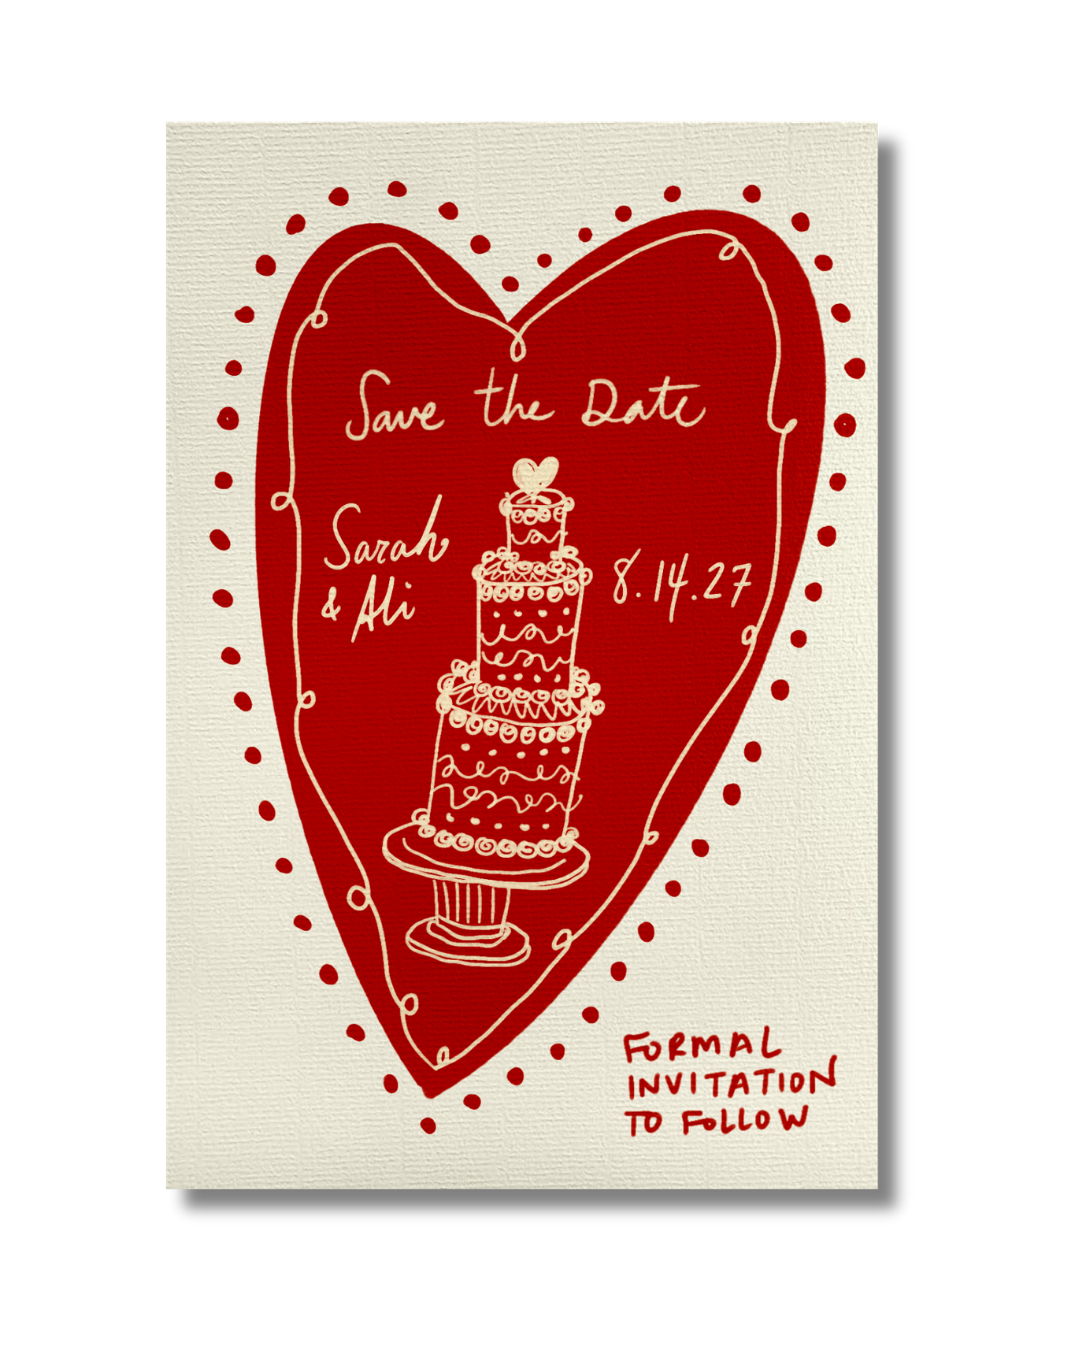 Save the Date
Sarah
& Ali
8.14.27
FORMAL
INVITATION
TO FOLLOW